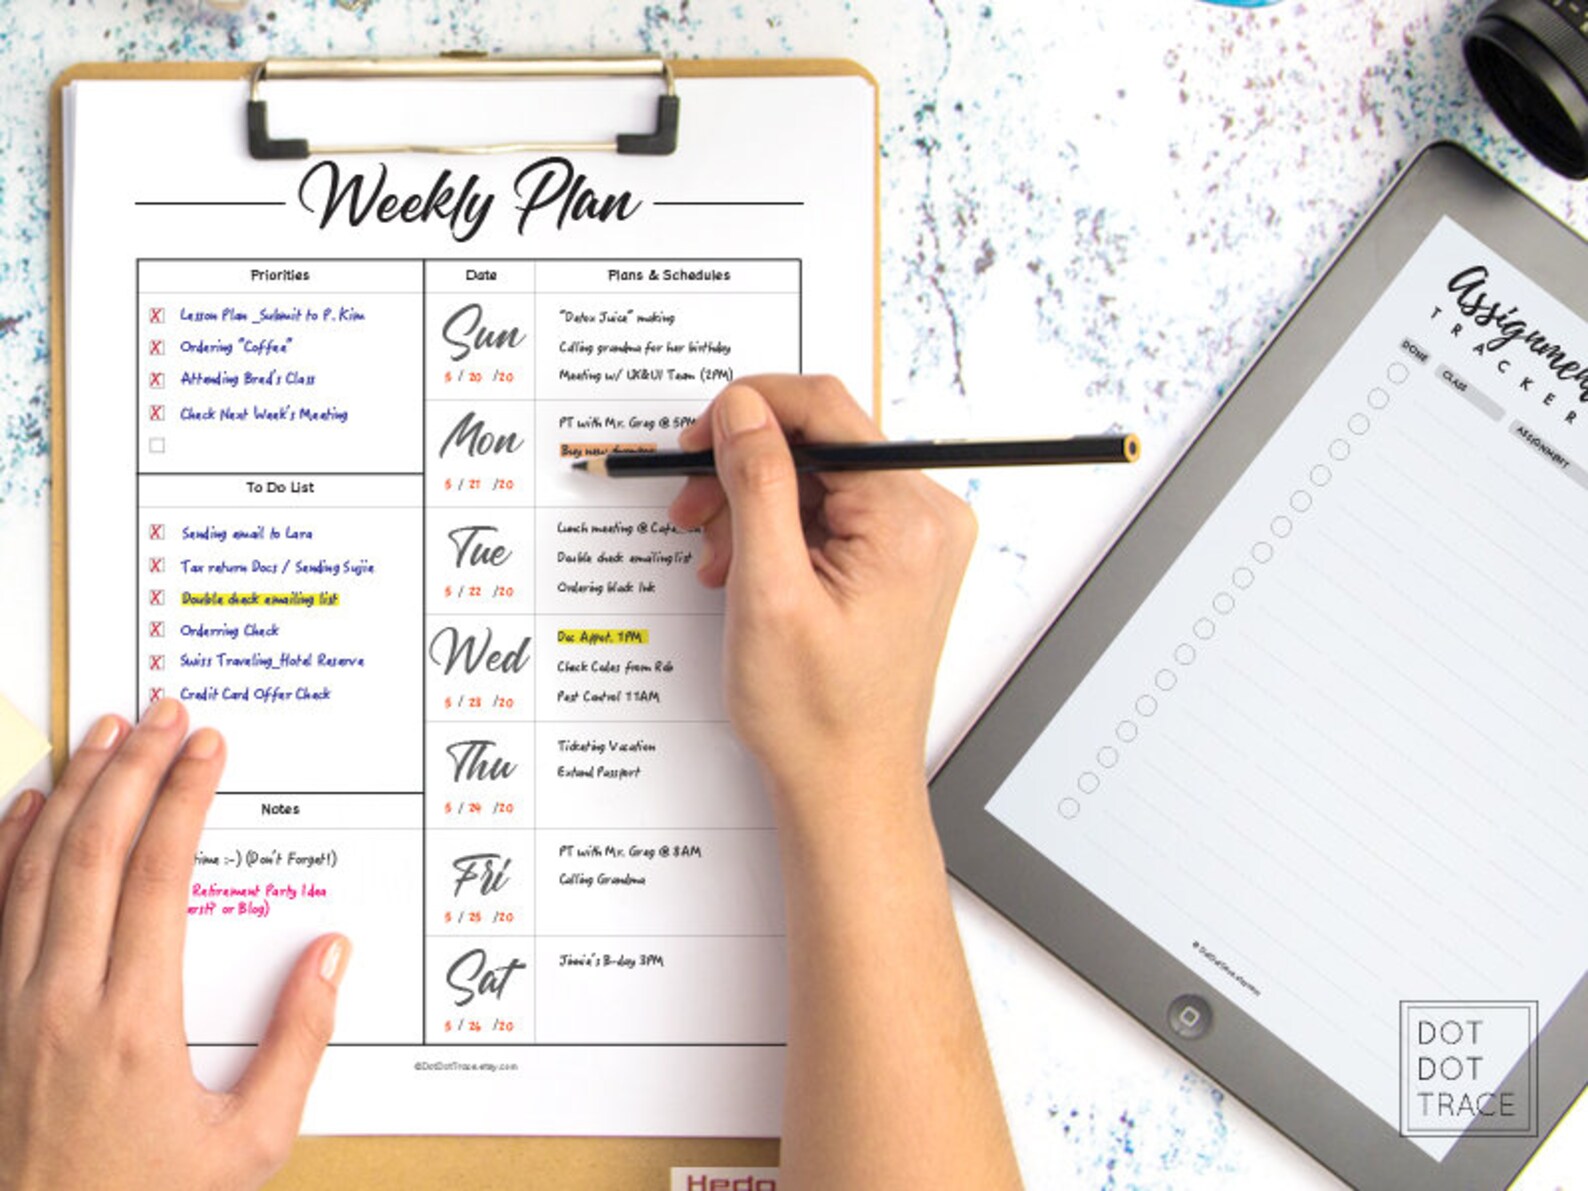 Weekly Plan
Priorities
Lesson Plan _Submit to P. Kim
Ordering "Coffee"
Attending Brad's Class
Check Next Week's Meeting
To Do List
Sending email to Lara
Tax return Docs / Sending Sujie
Double check emailing list
Orderring Check
Swiss Traveling_Hotel Reserve
Credit Card Offer Check
Notes
time :-) (Don't Forget!)
Retirement Party Idea
or Blog)
Date
Plans & Schedules
Sun
5 / 20 /20
"Detox Juice" making
Calling grandma for her birthday
Meeting w/ UX&UI Team (2PM)
Mon
5 / 21 /20
PT with Mr. Greg @ 5PM
Buy new
Tue
5 / 22 /20
Lunch meeting @ Cafe
Double check emailing list
Ordering black Ink
Wed
5 / 23 /20
Doc Appot. 1PM
Check Codes from Rob
Pest Control 11AM
Thu
5 / 24 /20
Ticketing Vacation
Extend Passport
Fri
5 / 25 /20
PT with Mr. Greg @ 8AM
Calling Grandma
Sat
5 / 26 /20
B-day 3PM
©DotDotTrace.etsy.com
Assignment
TRACKER
DONE
CLASS
ASSIGNMENT
DOT
DOT
TRACE